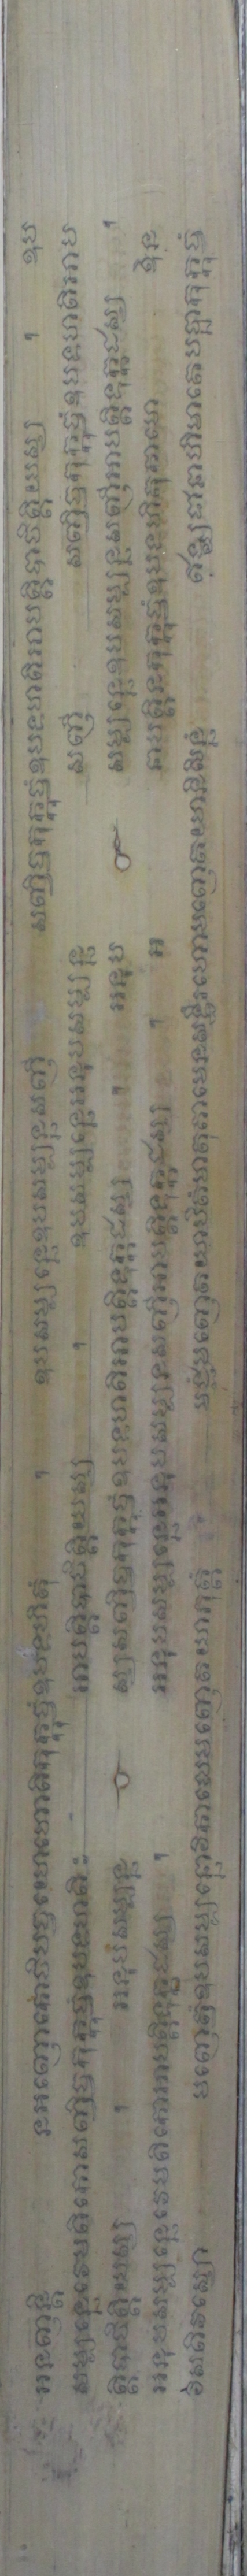 អនញ្ញន្តិ នអញ្ញោកោចិបច្ចយោហោតិកុក្កុច្ចំឧបទហិតុំ ។ ឧបសម្បន្នេឧបសម្បន្នសញ្ញី សញ្ចិច្ចកុក្កុច្ចំឧបទហតិអាបត្តិបាចិត្តិយស្ស ។ ឧប
សម្បន្នេវេមតិកោសញ្ចិច្ចកុក្កុច្ចំឧបទហតិ អាបត្តិបាចិត្តិយស្ស ។ ឧបសម្បន្នេអនុបសម្បន្ន សញ្ញី សញ្ចិច្ចកុក្កុច្ចំឧបទហតិអាប
ត្តិបាចិត្តិយស្ស ។ អនុបសម្បន្ន ស្សសញ្ចិច្ចកុក្កុច្ចំឧបទហតិអាបត្តិទុក្កដស្ស ។ អនុប សម្បន្នេឧបសម្បន្នសញ្ញីអាបត្តិទុក្កដស្ស ។
អនុបសម្បន្នេវេមតិកោអាបត្តិទុក្កដស្ស ។ អនុបសម្បន្នេអនុបសម្បន្នសញ្ញីអាបត្តិទុក្កដស្ស ។ អ នាបត្តិនកុក្កុច្ចំឧបទហិតុកាមោ ឩន
វីសតិវស្សោ មញ្ញេត្វំឧបសម្បន្នោវិកាលេមញ្ញេតយាភុត្តំ មជ្ជំមញ្ញេតយាបីតំមាតុគាមេនសទ្ធឹរហោមញ្ញេតយានិសិន្នំ ឥង្ឃជានាហិមាតេបច្ឆាកុក្កុច្ចំ